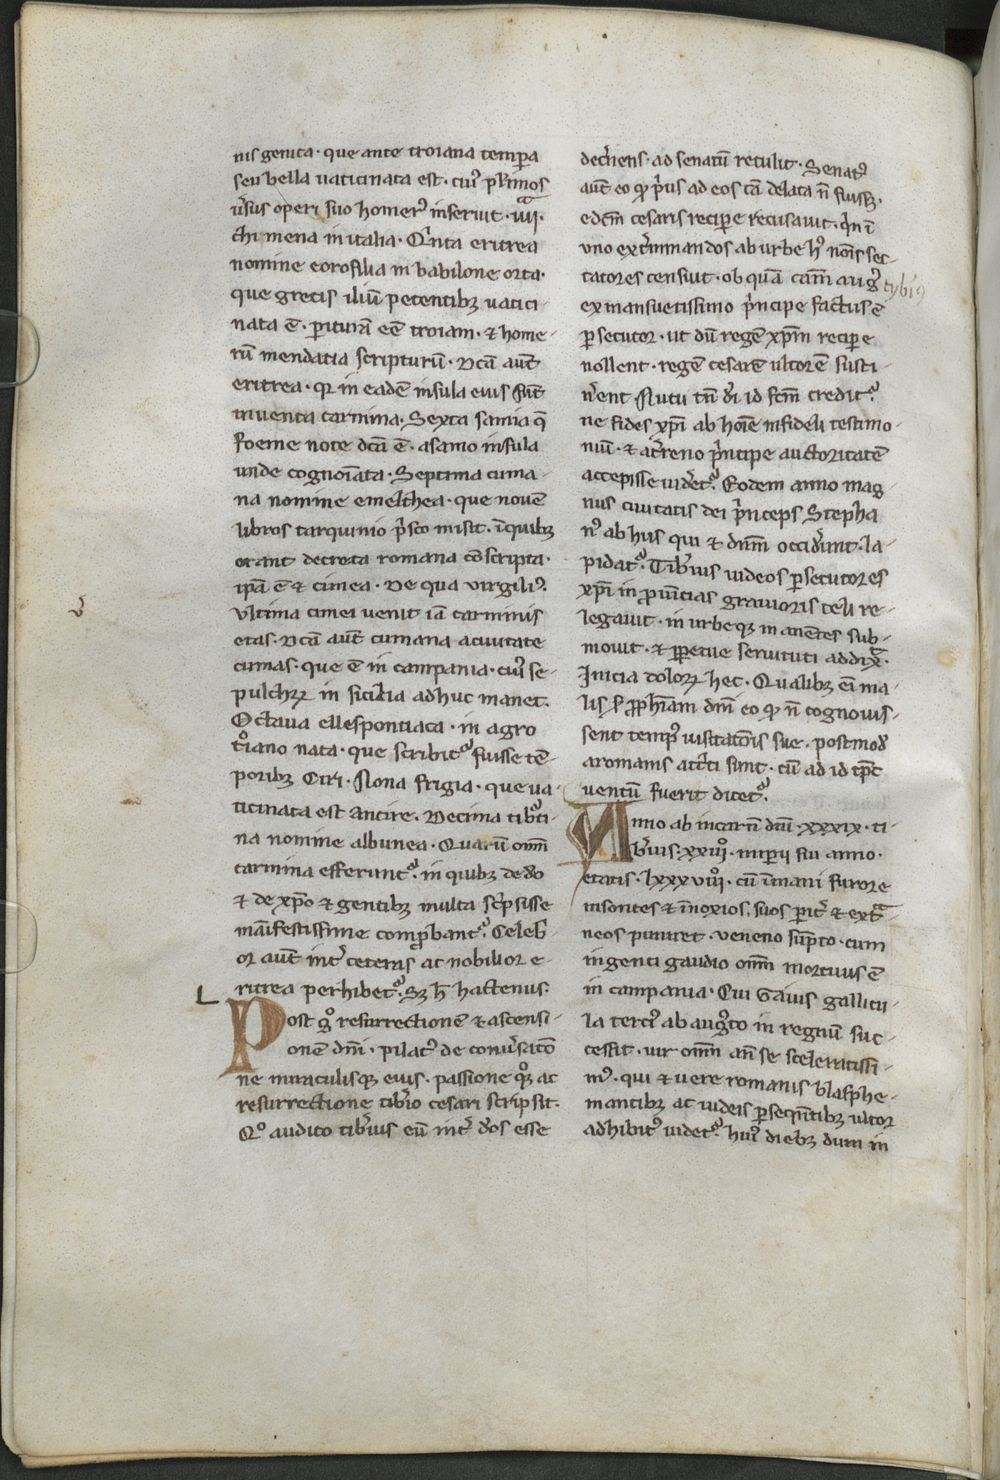 nis genita · que ante troiana tempora
seu bella uaticinata est · cuiꝰ plimos
ũsus operi suo homerꝰ inseruit · iiii ·
chi mena in italia · Qͥnta eritrea
nomine eorofilia in babilone orta ·
que grecis iliũ petentibꝫ uatici
nata ẽ · piturã eẽ troiam · ⁊ home-
rũ mendatia scripturũ · Dcã aut̃
eritrea · qr in eadẽ insula eius sũt
inuenta carmina · Sexta samia q̃
foeme note dc̃a ẽ · a samo insula
unde cognoĩata · Septima cuma-
na nomine emelthea · que nouẽ
libros tarquinio p̃sco misit · ĩ quibꝫ
erant decreta romana cõscripta ·
ip̃a ẽ ⁊ cimea · De qua uirgiliꝰ ·
vltima cimei uenit iã carminis
etas · Dcã aut̃ cumana a ciuitate
cumas · que ẽ in campania · cuiꝰ se-
pulchꝝ in sicilia adhuc manet ·
Octaua ellespontiaca · in agro
tͦiano nata · que scribitᷣ fuisse tẽ-
poribꝫ Ciri · Nona frigia · que ua-
ticinata est ancire · Decima tibᷣti-
na nomine albunea · Quarũ om̃
carmina efferuntᷣ · in quibꝫ de do
⁊ de xp̃o ⁊ gentibꝫ multa sc̃psisse
mãifestissime comp̃bantᷣ · Celeb̃
or aut̃ int̃ ceteras ac nobilior e-
ritrea perhibetᷣ · Sꝫ h̃ hactenus ·
L
Post gͦ resurrectionẽ ⁊ ascensi-
onẽ dñi · pilatꝰ de conũsatõ
ne miraculisqꝫ eius · passione qͦꝫ ac
resurrectione tib̃io cesari scripsit ·
Qͦ audito tib̃ius eũ int̃ dos esse
dec̃nens · ad senatũ retulit · Senatꝰ
aut̃ eo qͩ p̃us ad eos cã delata ñ fuiss; ·
edcm̃ cesaris recipe recusauit · qͥn ĩ
vno ext̃minandos ab urbe hꝰ noĩs sec-
tatores censuit · ob quã cam̃ augꝰ
tybiꝰ
ex mansuetissimo p̃ncipe factus ẽ
psecutor · ut dũ regẽ xp̃m recipe
nollent · regẽ cesarẽ ultorẽ susti-
ñent Nutu tñ di id fcm̃ creditᷣ ·
ne fides xp̃i ab hoĩe infideli testimo-
niũ · ⁊ a t̃reno p̃ncipe auctoritatẽ
accepisse uid̃etᷣ · Eodem anno mag-
nus ciuitatis dei p̃nceps Stepha
nꝰ ab hiis qui ⁊ dñm occid̃unt · la-
pidatᷣ · Tib̃ius iudeos psecutores
xp̃i in prouĩcias grauioris celi re-
legauit · in urbeqꝫ manẽtes sub-
mouit · ⁊ ppetue seruituti addix̃ ·
Inicia doloꝝ hec · Qualibꝫ eĩ ma-
lis · s̃ pphĩam dñi eo qͩ ñ cognouis-
sent tempꝰ uisitatõis sue · postmod̃
a romanis att̃ti sunt · cũ ad id tp̃c
uentũ fuerit dicetᷣ ·
Anno ab incarñ dñi · xxxix · ti-
b̃ius · xxiii · imperii sui anno ·
etatis · lxxxviii · cũ ĩmani furore
insontes ⁊ ĩnoxios, suos pit̃ ⁊ ext̃-
neos puniret · ueneno sũpto · cum
ingenti gaudio om̃ mortuus ẽ
in campania · Cui Gaius gallicu-
la tercꝰ ab augᷣto in regnũ suc-
cessit · uir om̃ añ se sceleratissi-
mꝰ · qui ⁊ uere romanis blasphe-
mantibꝫ ac iudeis pseqn̄tibꝫ ultor
adhibitꝰ uidetᷣ · huiꝰ diebꝫ dum in